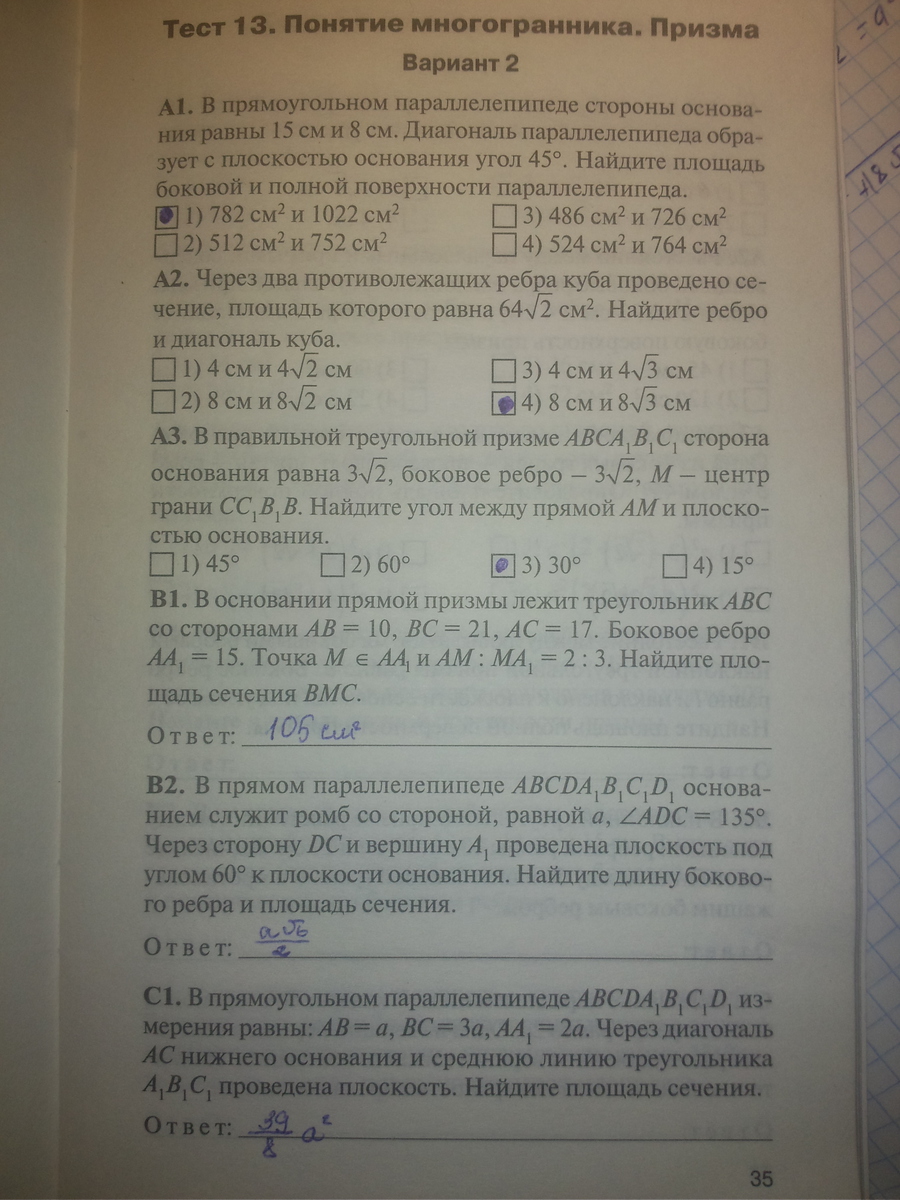 Тест 13. Понятие многогранника. Призма
Вариант 2
А1. В прямоугольном параллелепипеде стороны основа-
ния равны 15 см и 8 см. Диагональ параллелепипеда обра-
зует с плоскостью основания угол 45°. Найдите площадь
боковой и полной поверхности параллелепипеда.
1) 782 см² и 1022 см² 3) 486 см² и 726 см²
2) 512 см² и 752 см² 4) 524 см² и 764 см²
А2. Через два противолежащих ребра куба проведено се-
чение, площадь которого равна 64√2 см². Найдите ребро
и диагональ куба.
1) 4 см и 4√2 см 3) 4 см и 4√3 см
2) 8 см и 8√2 см 4) 8 см и 8√3 см
А3. В правильной треугольной призме ABCA₁B₁C₁ сторона
основания равна 3√2, боковое ребро – 3√2, M – центр
грани CC₁B₁B. Найдите угол между прямой AM и плоско-
стью основания.
1) 45° 2) 60° 3) 30° 4) 15°
В1. В основании прямой призмы лежит треугольник ABC
со сторонами AB = 10, BC = 21, AC = 17. Боковое ребро
AA₁ = 15. Точка M ∈ AA₁ и AM : MA₁ = 2 : 3. Найдите пло-
щадь сечения BMC.
Ответ: 105 см²
В2. В прямом параллелепипеде ABCDA₁B₁C₁D₁ основа-
нием служит ромб со стороной, равной a, ∠ADC = 135°.
Через сторону DC и вершину A₁ проведена плоскость под
углом 60° к плоскости основания. Найдите длину боково-
го ребра и площадь сечения.
Ответ: a√6/2
С1. В прямоугольном параллелепипеде ABCDA₁B₁C₁D₁ из-
мерения равны: AB = a, BC = 3a, AA₁ = 2a. Через диагональ
AC нижнего основания и среднюю линию треугольника
A₁B₁C₁ проведена плоскость. Найдите площадь сечения.
Ответ: 39/8 a²
35